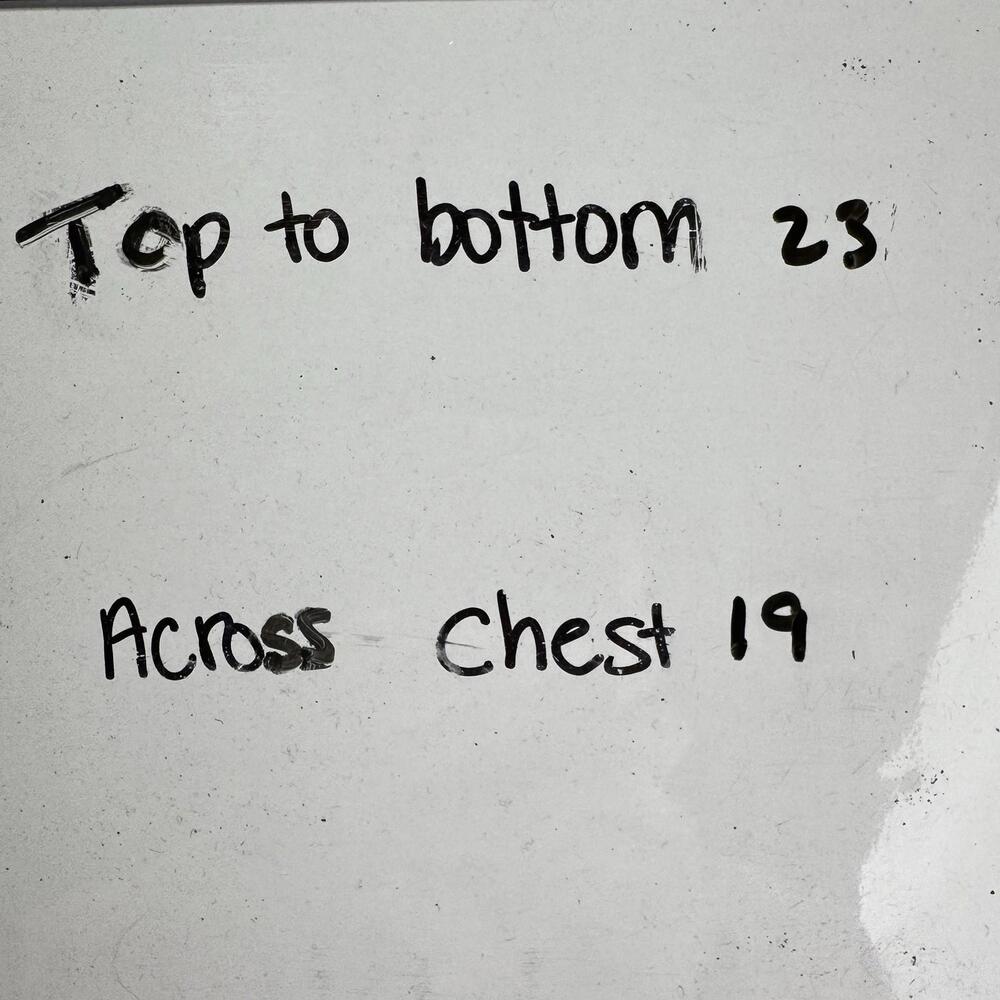 Top to bottom 23
Across chest 19